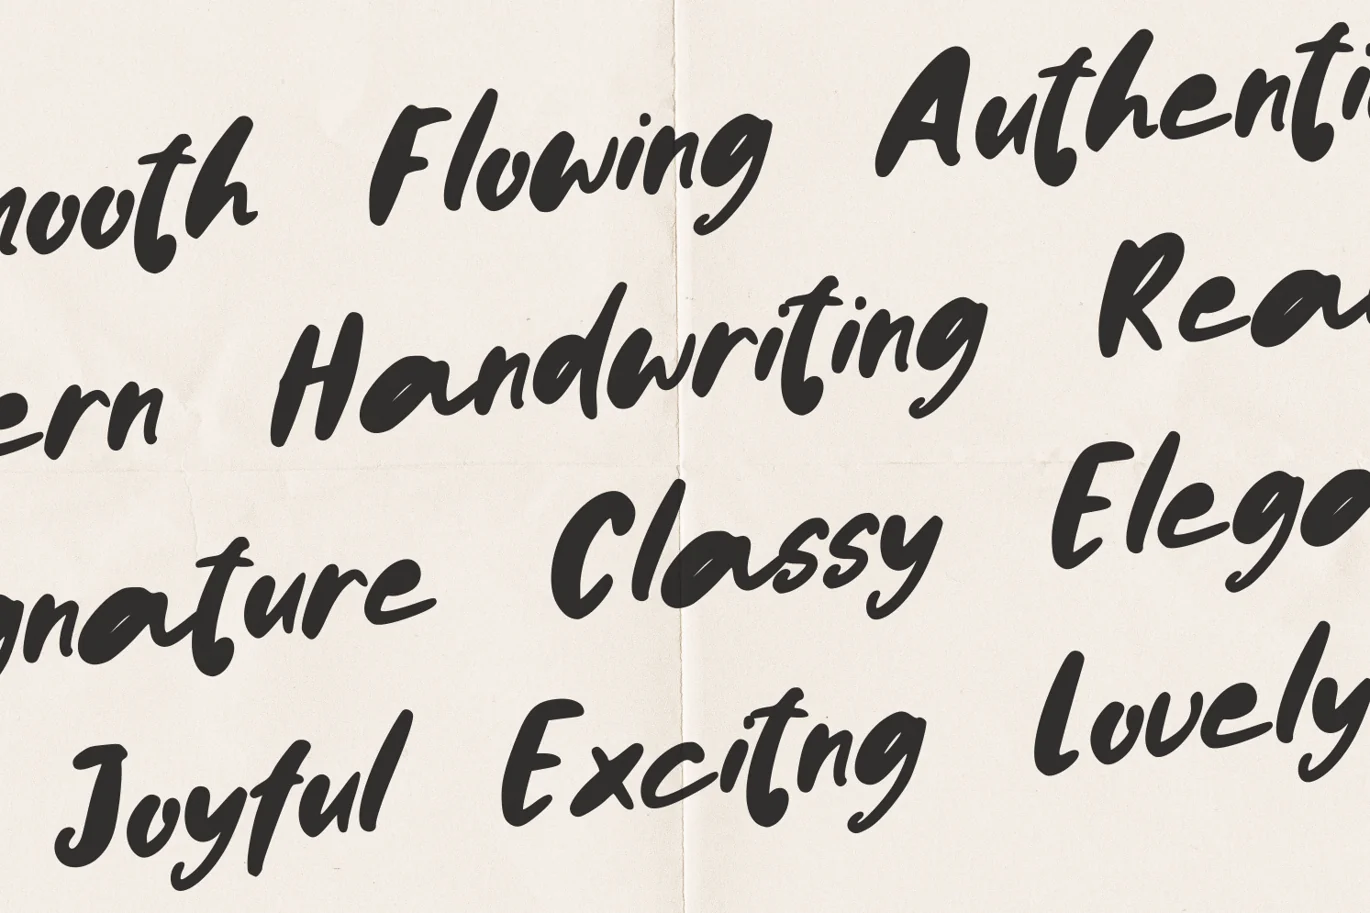 mooth Flowing Authenti
ern Handwriting Rea
gnature Classy Elega
Joyful Excitng Lovely